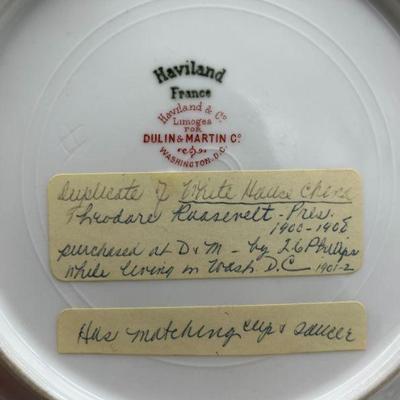 Haviland
France
Haviland & Co
Limoges
FOR
DULIN & MARTIN Co
WASHINGTON, D.C.
Duplicate of White House China
Theodore Roosevelt - Pres.
1900-1908
purchased at D & M - by Phillips
while living in Wash D.C 1901-2
Has matching cup & saucer